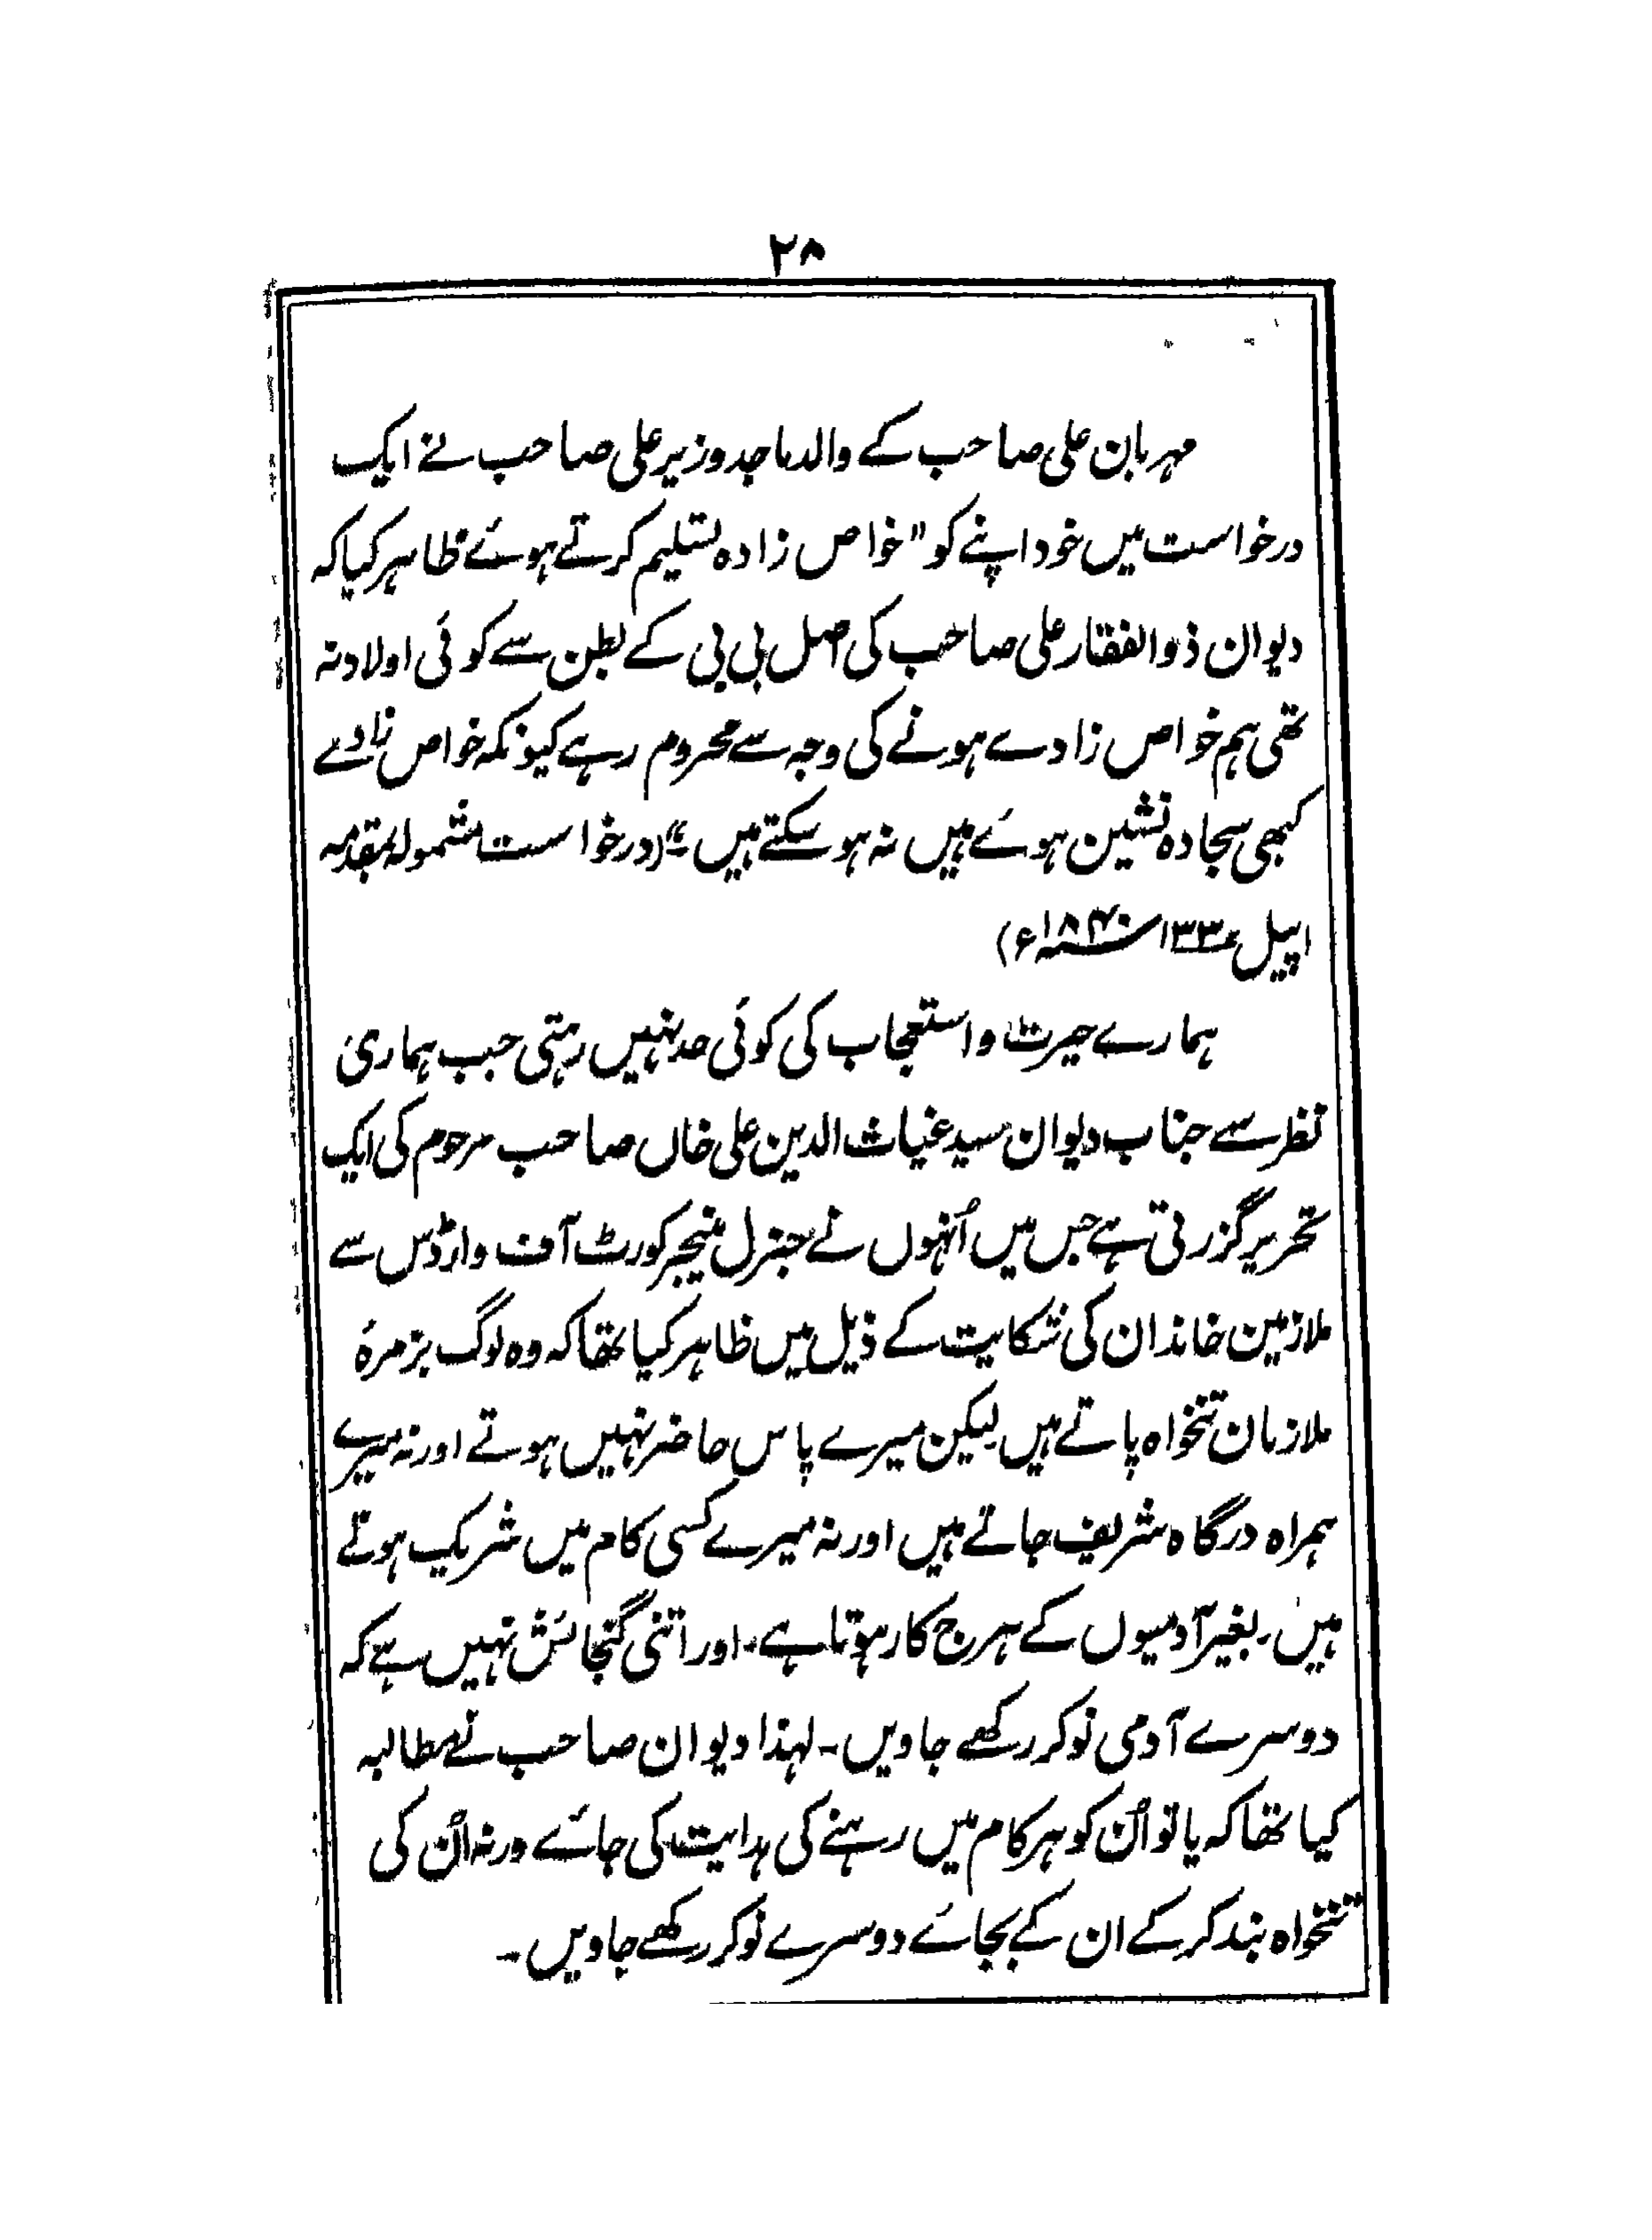 ۲۸
مہربان علی صاحب کے والد ماجد وزیر علی صاحب نے ایک
درخواست میں خود اپنے کو "خواص زادہ تسلیم کرتے ہوئے ظاہر کیا کہ
دیوان ذوالفقار علی صاحب کی اصل بی بی کے بطن سے کوئی اولاد نہ
تھی ہم خواص زادے ہونے کی وجہ سے محروم رہے کیونکہ خواص زادے
کبھی سجادہ نشین ہوئے ہیں نہ ہو سکتے ہیں۔" (درخواست مشمولہ مقدمہ
اپیل ۱۳۳ ۱۸۴۰ء)
ہمارے حیرت و استعجاب کی کوئی حد نہیں رہتی جب ہماری
نظر سے جناب دیوان سید غیاث الدین علی خاں صاحب مرحوم کی ایک
تحریر گزرتی ہے جس میں اُنہوں نے جنرل منیجر کورٹ آف وارڈس سے
ملازمین خاندان کی شکایت کے ذیل میں ظاہر کیا تھا کہ وہ لوگ بزمرۂ
ملازمان تنخواہ پاتے ہیں لیکن میرے پاس حاضر نہیں ہوتے اور نہ میرے
ہمراہ درگاہ شریف جاتے ہیں اور نہ میرے کسی کام میں شریک ہوتے
ہیں۔ بغیر آدمیوں کے ہرج کار ہوتا ہے۔ اور اتنی گنجائش نہیں ہے کہ
دوسرے آدمی نوکر رکھے جاویں۔ لہذا دیوان صاحب نے مطالبہ
کیا تھا کہ یا تو اُن کو ہر کام میں رہنے کی ہدایت کی جائے ورنہ اُن کی
تنخواہ بند کر کے ان کے بجائے دوسرے نوکر رکھے جاویں۔